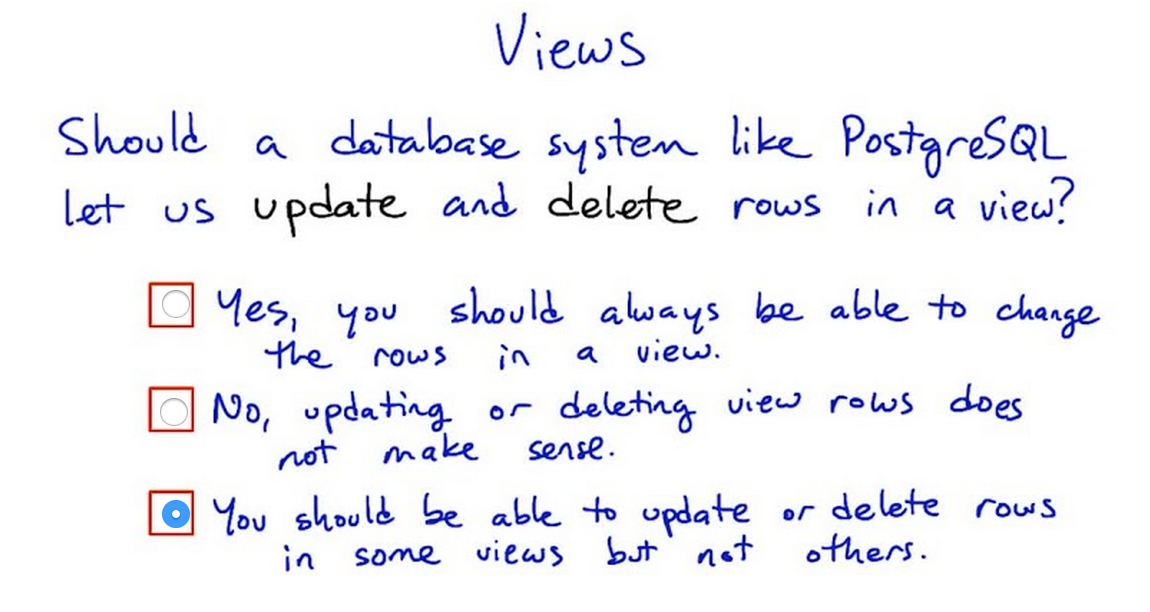 Views
Should a database system like PostgreSQL
let us update and delete rows in a view?
Yes, you should always be able to change
the rows in a view.
No, updating or deleting view rows does
not make sense.
You should be able to update or delete rows
in some views but not others.